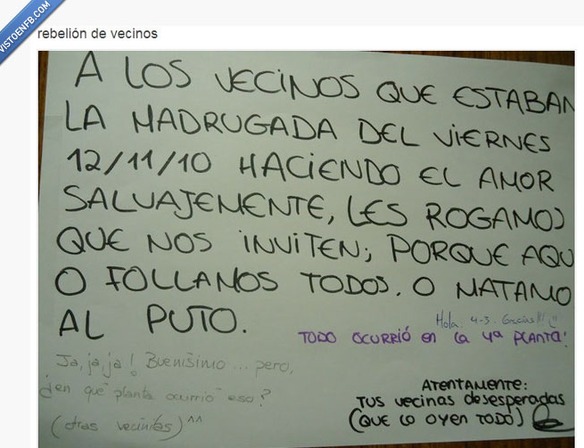 VISTOENFB.COM
rebelión de vecinos
A LOS VECINOS QUE ESTABAN
LA MADRUGADA DEL VIERNES
12/11/10 HACIENDO EL AMOR
SALVAJEMENTE, LES ROGAMOS
QUE NOS INVITEN; PORQUE AQU
O FOLLAMOS TODOS. O MATAMO
AL PUTO.
Hola 4-3. Gracias!!!
TODO OCURRIÓ EN LA 4ª PLANTA!
Ja, ja, ja! Buenísimo... pero,
¿en qué planta ocurrió eso?
(otras vecinitas)^^
ATENTAMENTE:
TUS vecinas desesperadas
(QUE LO OYEN TODO)